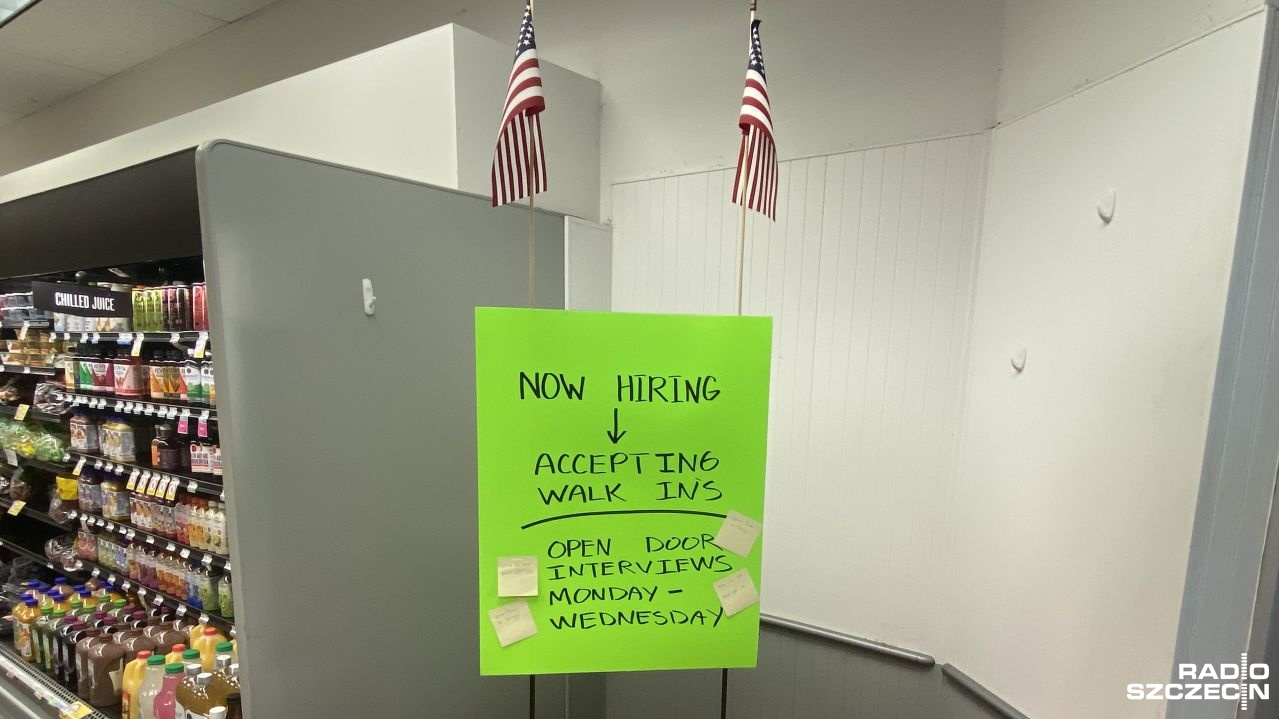 CHILLED JUICE
NOW HIRING
ACCEPTING
WALK IN'S
OPEN DOOR
INTERVIEWS
MONDAY -
WEDNESDAY
RADIO
SZCZECIN